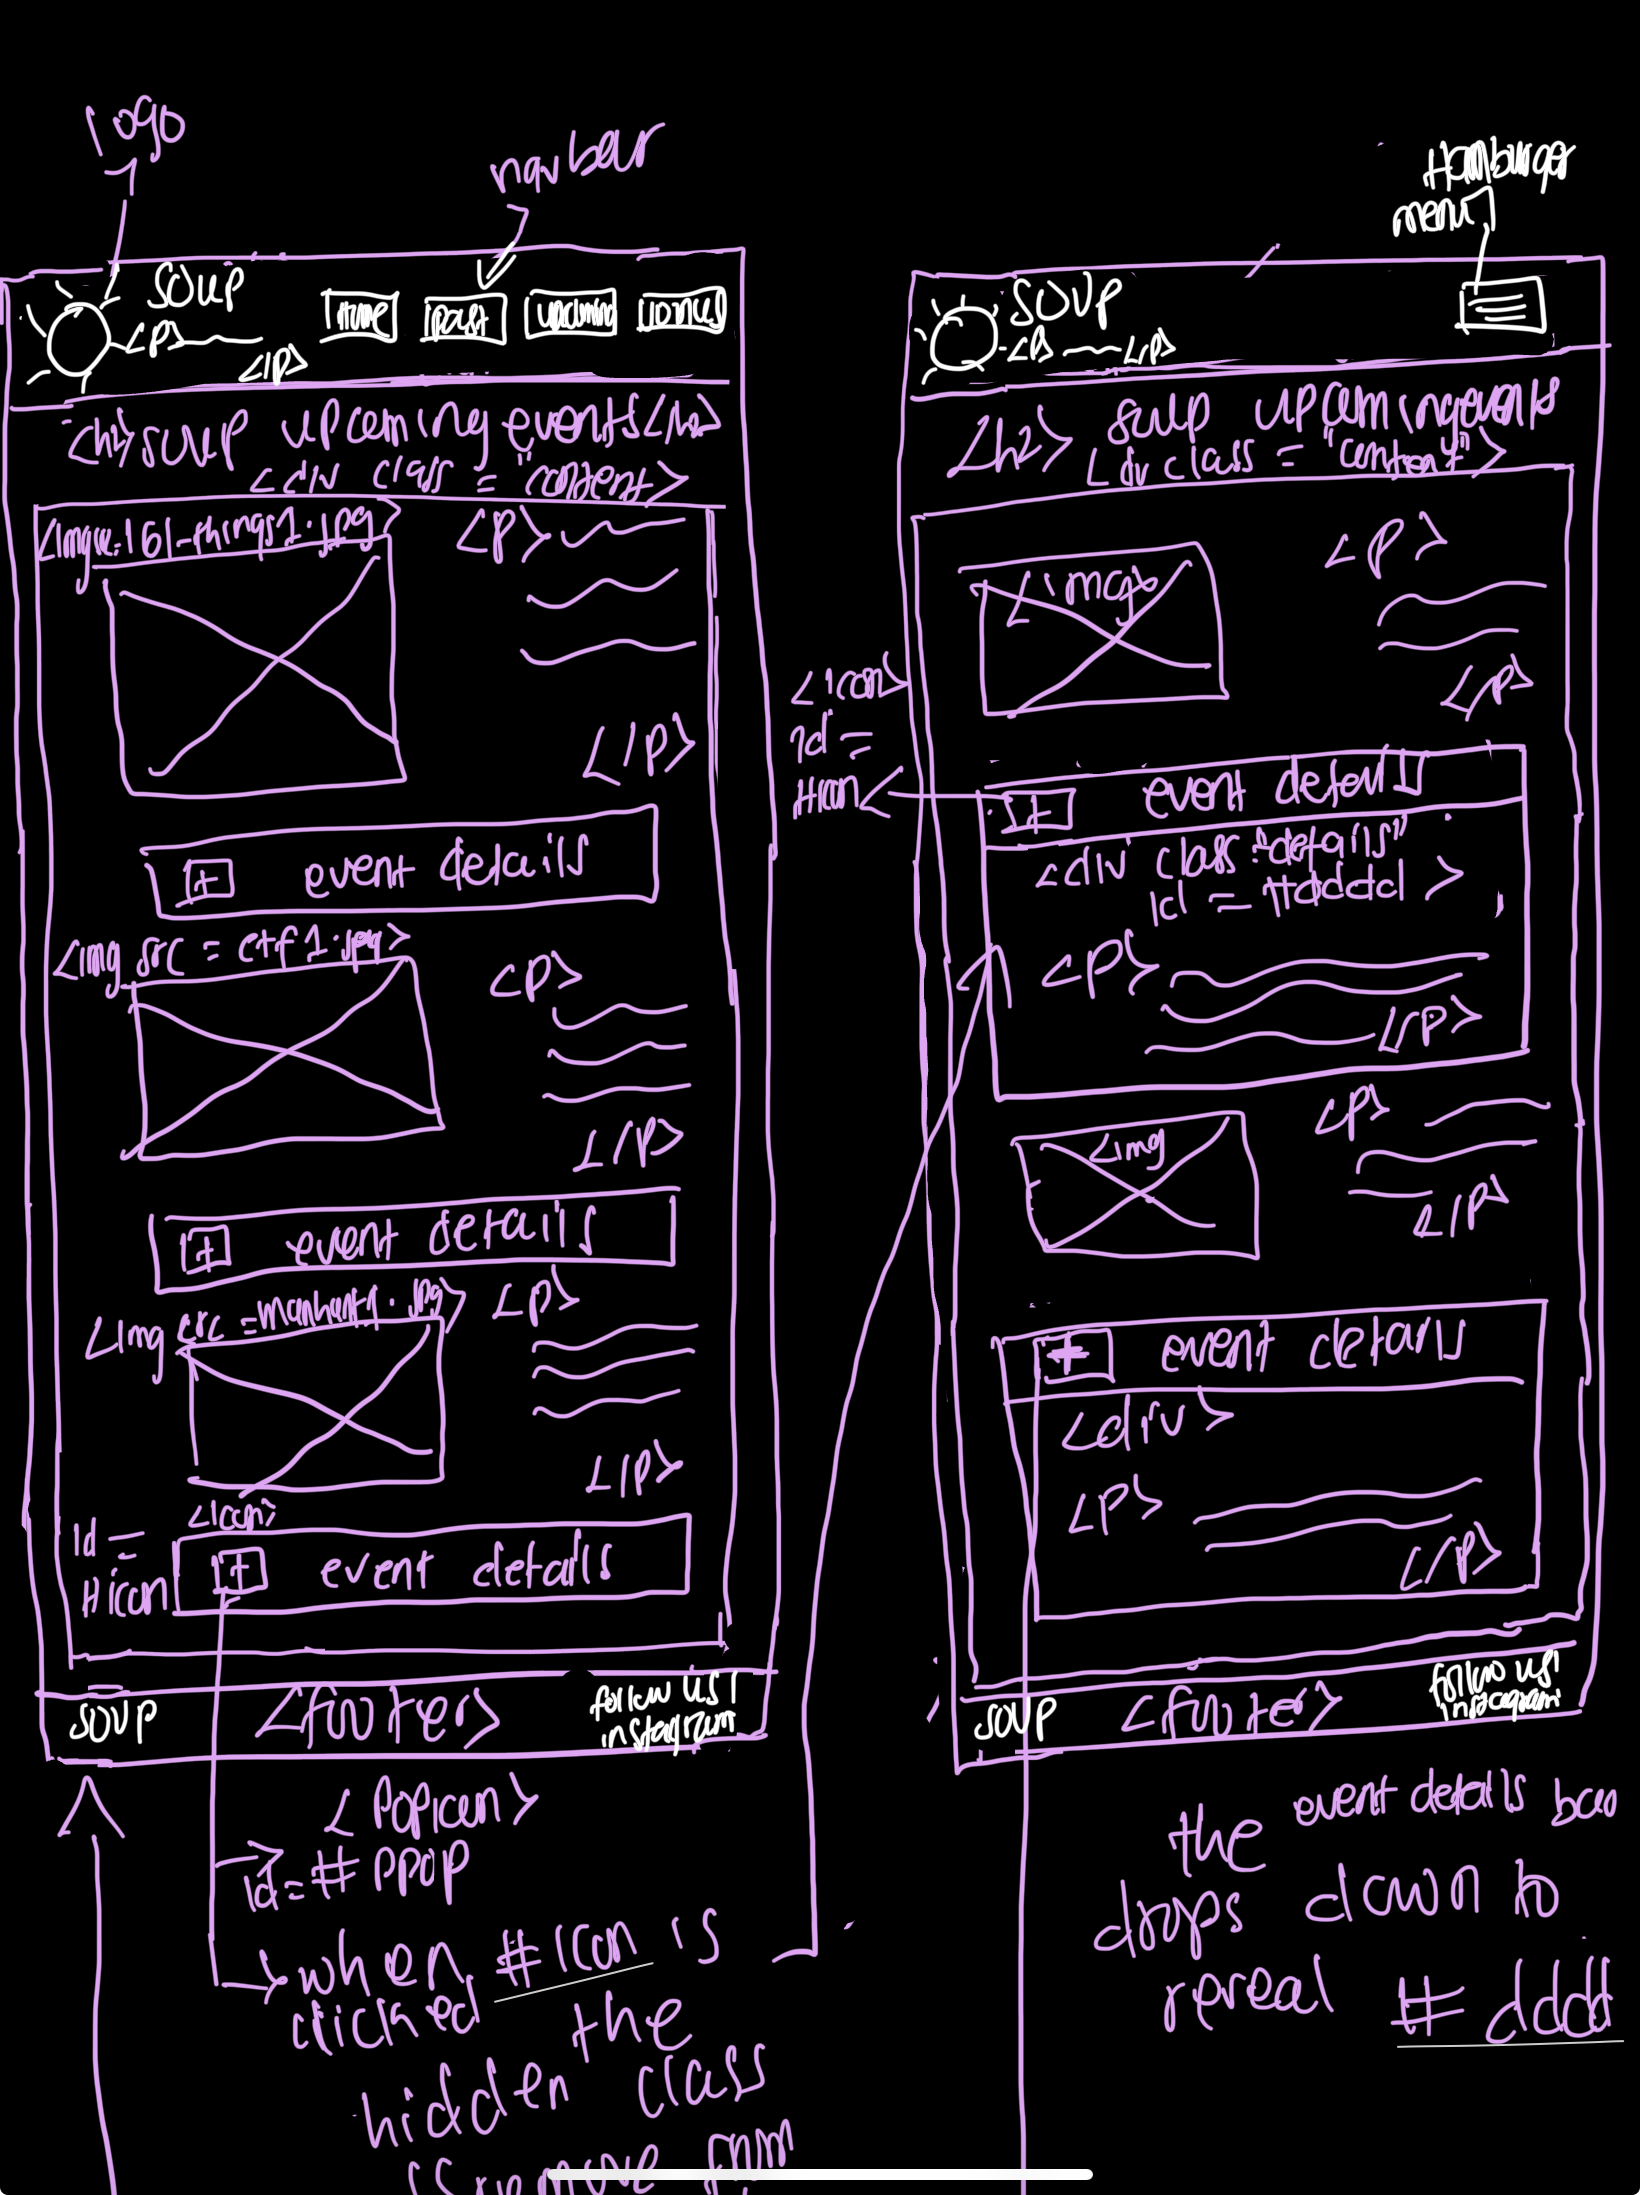 logo
navbar
SOUP
<p>
</p>
Home
past
upcoming
<h2>SOUP upcoming events</h2>
<div class = "content>
<img src=161-things1.jpg>
<p>
</p>
+ event details
<img src = ctf1.jpg>
<p>
</p>
+ event details
<img src =manhunt1.jpg>
<p>
</p>
<icon>
id =
#icon
+ event details
SOUP
<footer>
follow us!
instagram
<Popicon>
id=#PPOP
when #icon is
clicked the
hidden class
is remove from
Hamburger
menu
SOUP
<p> </p>
<h2> soup upcoming events
<div class = "content">
<img>
<p>
</p>
<icon>
id =
#icon
+ event details
<div class="details"
id = #dddd >
<p>
</p>
<img
<p>
</p>
+ event details
<div>
<p>
</p>
SOUP
<footer>
follow us!
instagram
the event details box
drops down to
reveal #dddd